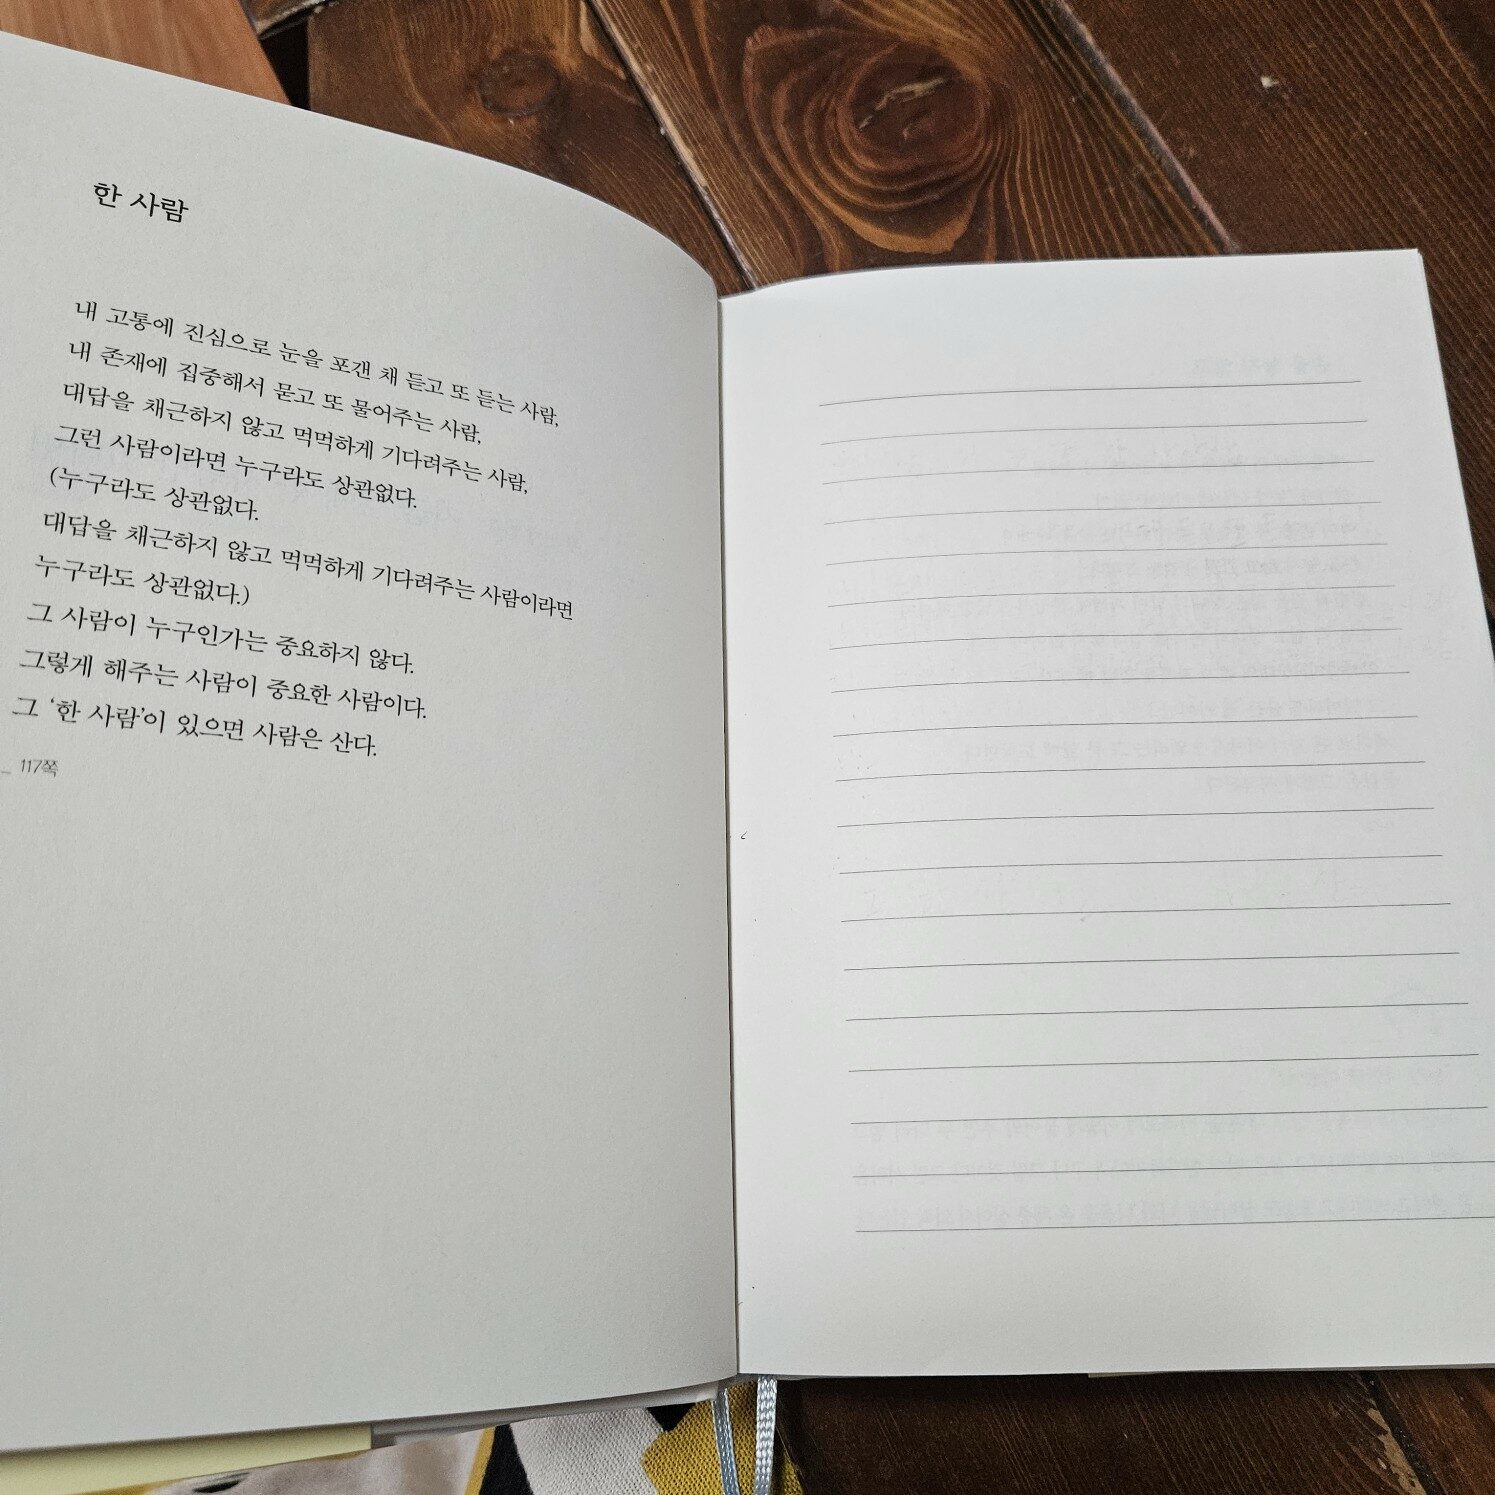 한 사람
내 고통에 진심으로 눈을 포갠 채 듣고 또 듣는 사람,
내 존재에 집중해서 묻고 또 물어주는 사람,
대답을 채근하지 않고 먹먹하게 기다려주는 사람,
그런 사람이라면 누구라도 상관없다.
(누구라도 상관없다.
대답을 채근하지 않고 먹먹하게 기다려주는 사람이라면
누구라도 상관없다.)
그 사람이 누구인가는 중요하지 않다.
그렇게 해주는 사람이 중요한 사람이다.
그 ‘한 사람’이 있으면 사람은 산다.
_ 117쪽